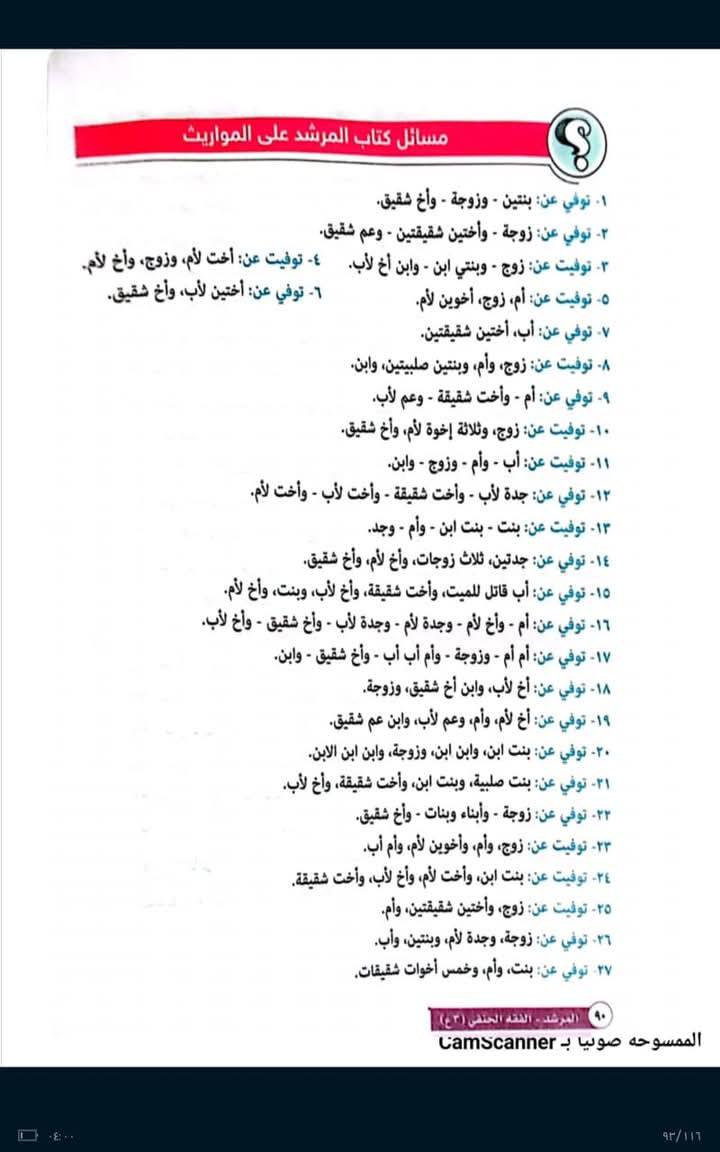 مسائل كتاب المرشد على المواريث
١- توفي عن: بنتين - وزوجة - وأخ شقيق.
٢- توفي عن: زوجة - وأختين شقيقتين - وعم شقيق.
٣- توفيت عن: زوج - وبنتي ابن - وابن أخ لأب.
٤- توفيت عن: أخت لأم، وزوج، وأخ لأم.
٥- توفيت عن: أم، زوج، أخوين لأم.
٦- توفي عن: أختين لأب، وأخ شقيق.
٧- توفي عن: أب، أختين شقيقتين.
٨- توفيت عن: زوج، وأم، وبنتين صلبيتين، وابن.
٩- توفي عن: أم - وأخت شقيقة - وعم لأب.
١٠- توفيت عن: زوج، وثلاثة إخوة لأم، وأخ شقيق.
١١- توفيت عن: أب - وأم - وزوج - وابن.
١٢- توفي عن: جدة لأب - وأخت شقيقة - وأخت لأب - وأخت لأم.
١٣- توفيت عن: بنت - بنت ابن - وأم - وجد.
١٤- توفي عن: جدتين، ثلاث زوجات، وأخ لأم، وأخ شقيق.
١٥- توفي عن: أب قاتل للميت، وأخت شقيقة، وأخ لأب، وبنت، وأخ لأم.
١٦- توفي عن: أم - وأخ لأم - وجدة لأم - وجدة لأب - وأخ شقيق - وأخ لأب.
١٧- توفي عن: أم أم - وزوجة - وأم أب أب - وأخ شقيق - وابن.
١٨- توفي عن: أخ لأب، وابن أخ شقيق، وزوجة.
١٩- توفي عن: أخ لأم، وأم، وعم لأب، وابن عم شقيق.
٢٠- توفي عن: بنت ابن، وابن ابن، وزوجة، وابن ابن الابن.
٢١- توفي عن: بنت صلبية، وبنت ابن، وأخت شقيقة، وأخ لأب.
٢٢- توفي عن: زوجة - وأبناء وبنات - وأخ شقيق.
٢٣- توفيت عن: زوج، وأم، وأخوين لأم، وأم أب.
٢٤- توفيت عن: بنت ابن، وأخت لأم، وأخ لأب، وأخت شقيقة.
٢٥- توفيت عن: زوج، وأختين شقيقتين، وأم.
٢٦- توفي عن: زوجة، وجدة لأم، وبنتين، وأب.
٢٧- توفي عن: بنت، وأم، وخمس أخوات شقيقات.
٩٠ المرشد - الفقه الحنفي (٣ع)
الممسوحة ضوئيا بـ CamScanner
٠٤:٠٠
٩٣/١١٦